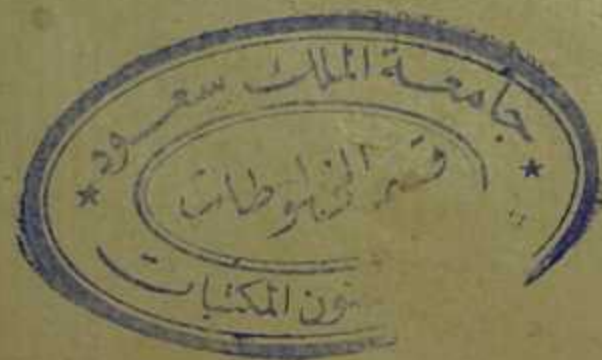 جامعة الملك سعود
قسم المخطوطات
ئون المكتبات